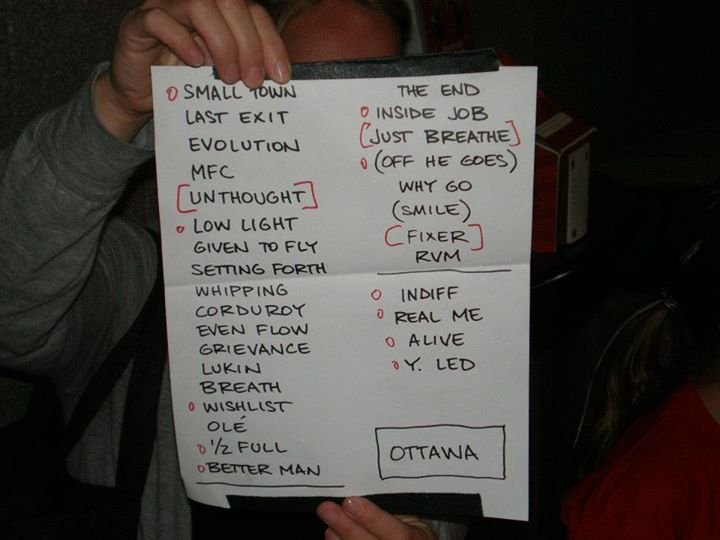 SMALL TOWN
LAST EXIT
EVOLUTION
MFC
[UNTHOUGHT]
LOW LIGHT
GIVEN TO FLY
SETTING FORTH
WHIPPING
CORDUROY
EVEN FLOW
GRIEVANCE
LUKIN
BREATH
WISHLIST
OLÉ
1/2 FULL
BETTER MAN
THE END
INSIDE JOB
[JUST BREATHE]
(OFF HE GOES)
WHY GO
(SMILE)
[FIXER]
RVM
INDIFF
REAL ME
ALIVE
Y. LED
OTTAWA